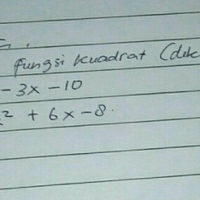 fungsi kuadrat (dik
- 3x - 10
² + 6x - 8.